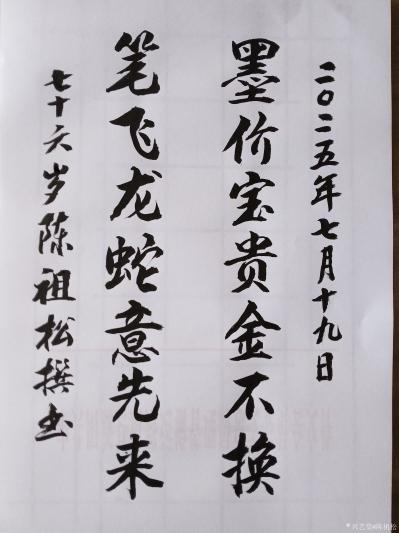 二〇二五年七月十九日
墨价宝贵金不换
笔飞龙蛇意先来
七十六岁陈祖松撰书